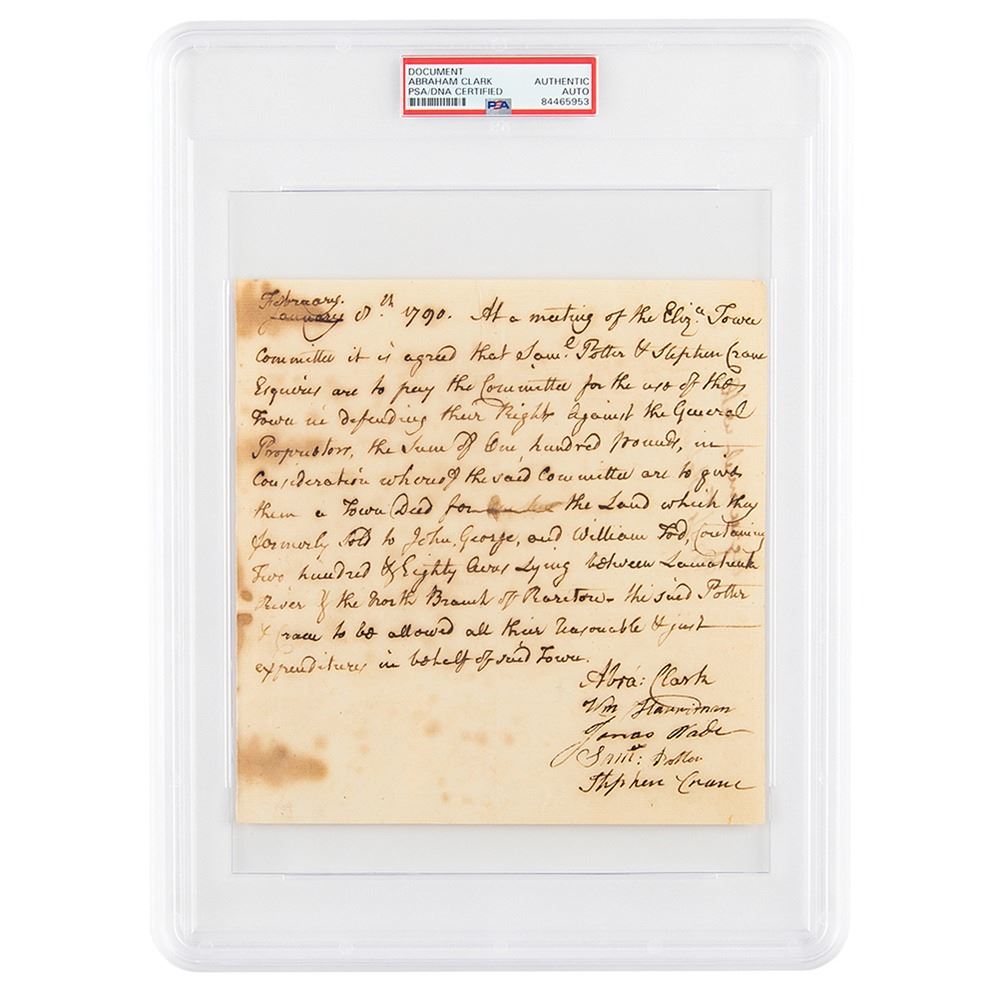 DOCUMENT
ABRAHAM CLARK
PSA/DNA CERTIFIED
AUTHENTIC
AUTO
84465953
PSA
February.
January 8.th 1790. At a meeting of the Eliz.a Town
Committee it is agreed that Sam.l Potter & Stephen Crane
Esquires are to pay the Committee for the use of the
Town in defending their Right against the General
Proprietors, the Sum of One hundred pounds, in
Consideration whereof the said Committee are to give
them a Town Deed for the Land which they
formerly Sold to John, George, and William Tod, Containing
Two hundred & Eighty Acres Lying between
River & the North Branch of Rariton - the said Potter
& Crane to be allowed all their reasonable & just
expenditures in behalf of said Town.
Abra: Clark
Wm
Jonas Wade
Saml: Potter
Stephen Crane